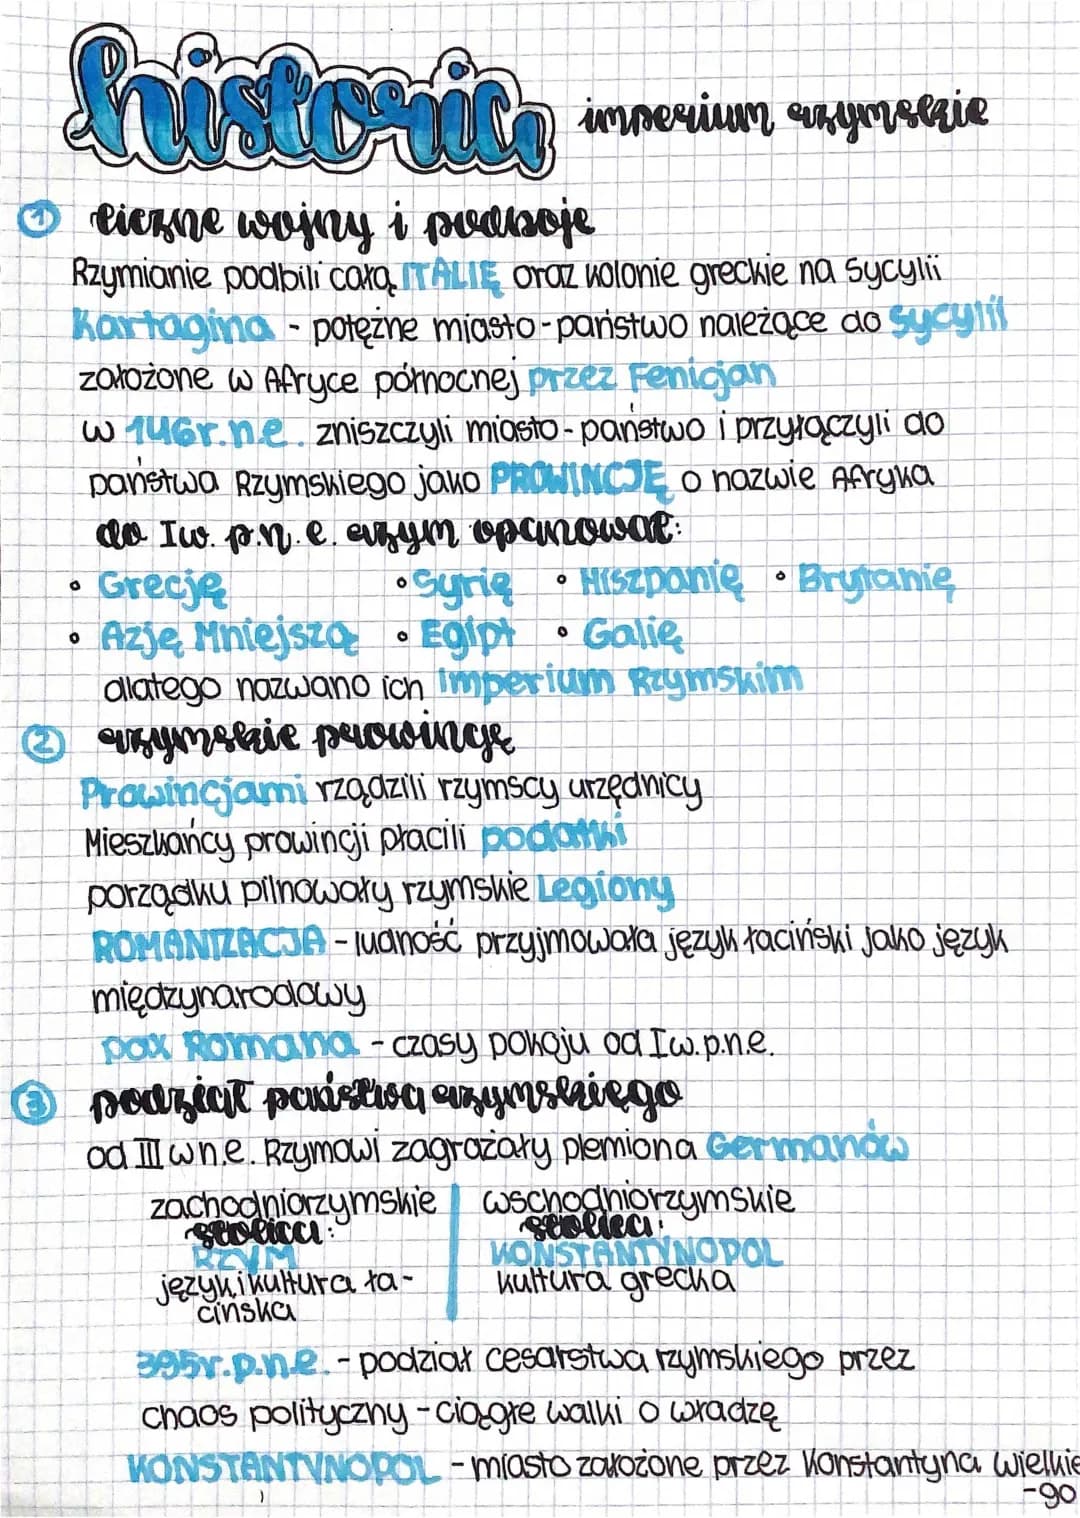 historia imperium rzymskie
1 liczne wojny i podboje
Rzymianie podbili całą ITALIĘ oraz kolonie greckie na Sycylii
Kartagina - potężne miasto-państwo należące do Sycylii
założone w Afryce północnej przez Fenicjan
w 146r.n.e. zniszczyli miasto-państwo i przyłączyli do
państwa Rzymskiego jako PROWINCJĘ o nazwie Afryka
do I w. p.n.e. rzym opanował:
• Grecję • Syrię • Hiszpanię • Brytanię
• Azję Mniejszą • Egipt • Galię
dlatego nazwano ich Imperium Rzymskim
2 rzymskie prowincje
Prowincjami rządzili rzymscy urzędnicy
Mieszkańcy prowincji płacili podatki
porządku pilnowały rzymskie Legiony
ROMANIZACJA - ludność przyjmowała język łaciński jako język
międzynarodowy
pax Romana - czasy pokoju od I w.p.n.e.
3 podział państwa rzymskiego
od III w n.e. Rzymowi zagrażały plemiona Germanów
zachodniorzymskie | wschodniorzymskie
stolica: stolica:
RZYM KONSTANTYNOPOL
język i kultura ła- kultura grecka
cińska
395r.p.n.e. - podział cesarstwa rzymskiego przez
chaos polityczny - ciągłe walki o władzę
KONSTANTYNOPOL - miasto założone przez Konstantyna Wielkie
-go